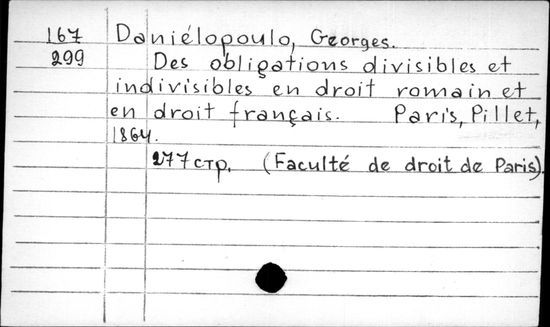 167 Daniélopoulo, Georges.
299 Des obligations divisibles et
indivisibles en droit romain et
en droit français. Paris, Pillet,
1864.
277 стр. (Faculté de droit de Paris).